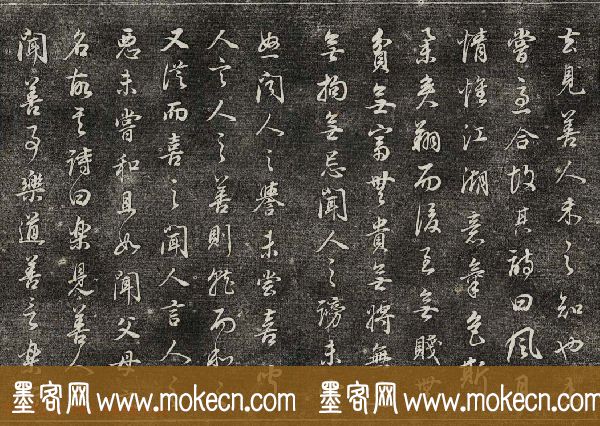 去見善人未之知也未
嘗急合故其詩曰風月
情懷江湖意氣色斯
舉矣翔而後至無賤無
貧無富無貴無將無
無拘無忌聞人之謗未
怒聞人之譽未嘗喜聞
人言人之善則就而和之
又從而喜之聞人言人之
惡未嘗和且如聞父母
名故其詩曰樂見善人
聞善事樂道善言樂
墨客网 www.mokecn.com 墨客网 www.mokecn.com